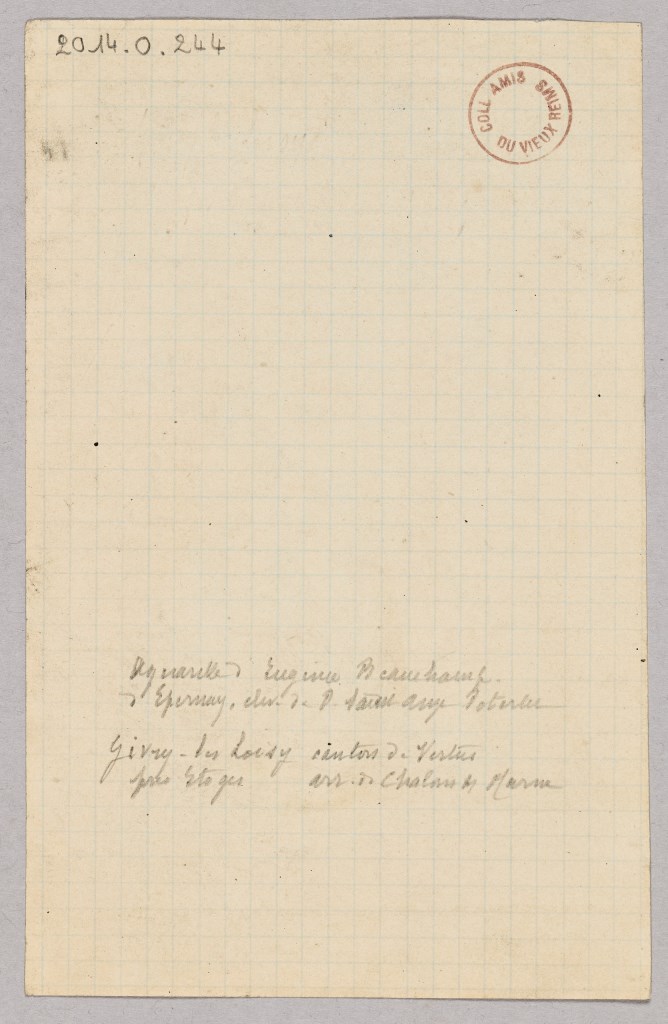 2014.0.244
COLL AMIS DU VIEUX REIMS
Aquarelle d' Eugénie Beauchamp.
d' Epernay, élév. de P. Saint Ange Poterlet
Givry-les Loisy canton de Vertus
près Etoges arr. de Chalons s/ Marne